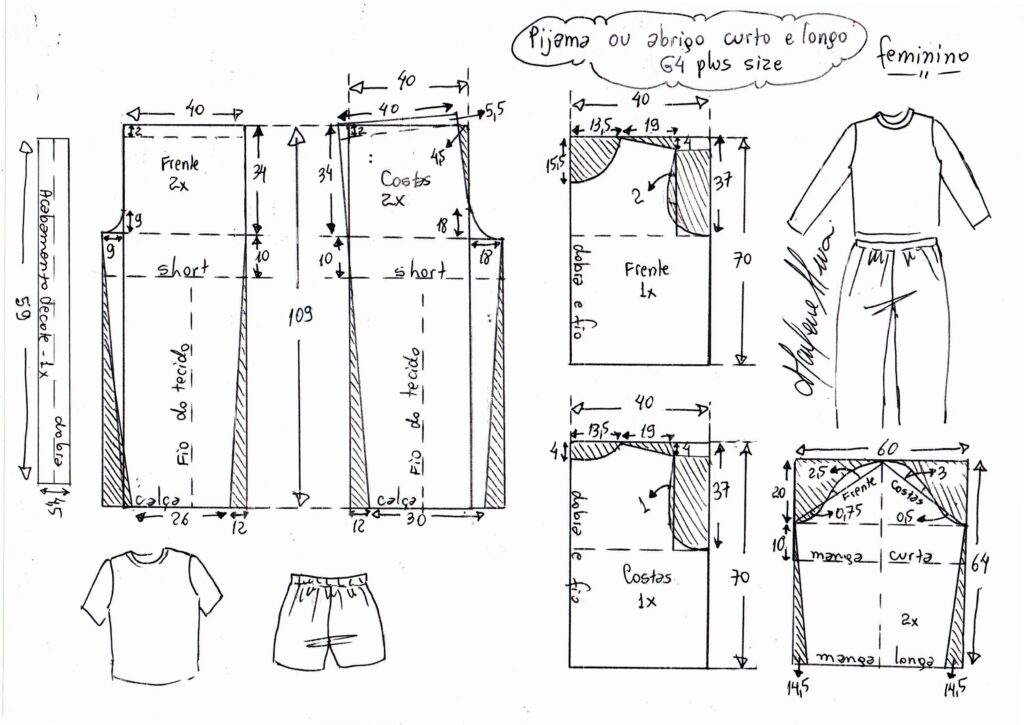 Pijama ou abrigo curto e longo
G4 plus size
feminino
"
Marlene Mukai
40
2
Frente
2x
34
9
9
short
10
Fio do tecido
calça
26
12
109
Acabamento decote - 1x
dobra
59
4,5
40
40
5,5
2
45
Costas
2x
34
18
18
10
short
Fio do tecido
calça
12
30
40
13,5
19
4
15,5
2
37
70
dobra e fio
Frente
1x
40
13,5
19
4
4
1
37
70
dobra e fio
Costas
1x
60
2,5
3
20
Frente
Costas
0,75
0,5
10
manga curta
64
2x
manga longa
14,5
14,5